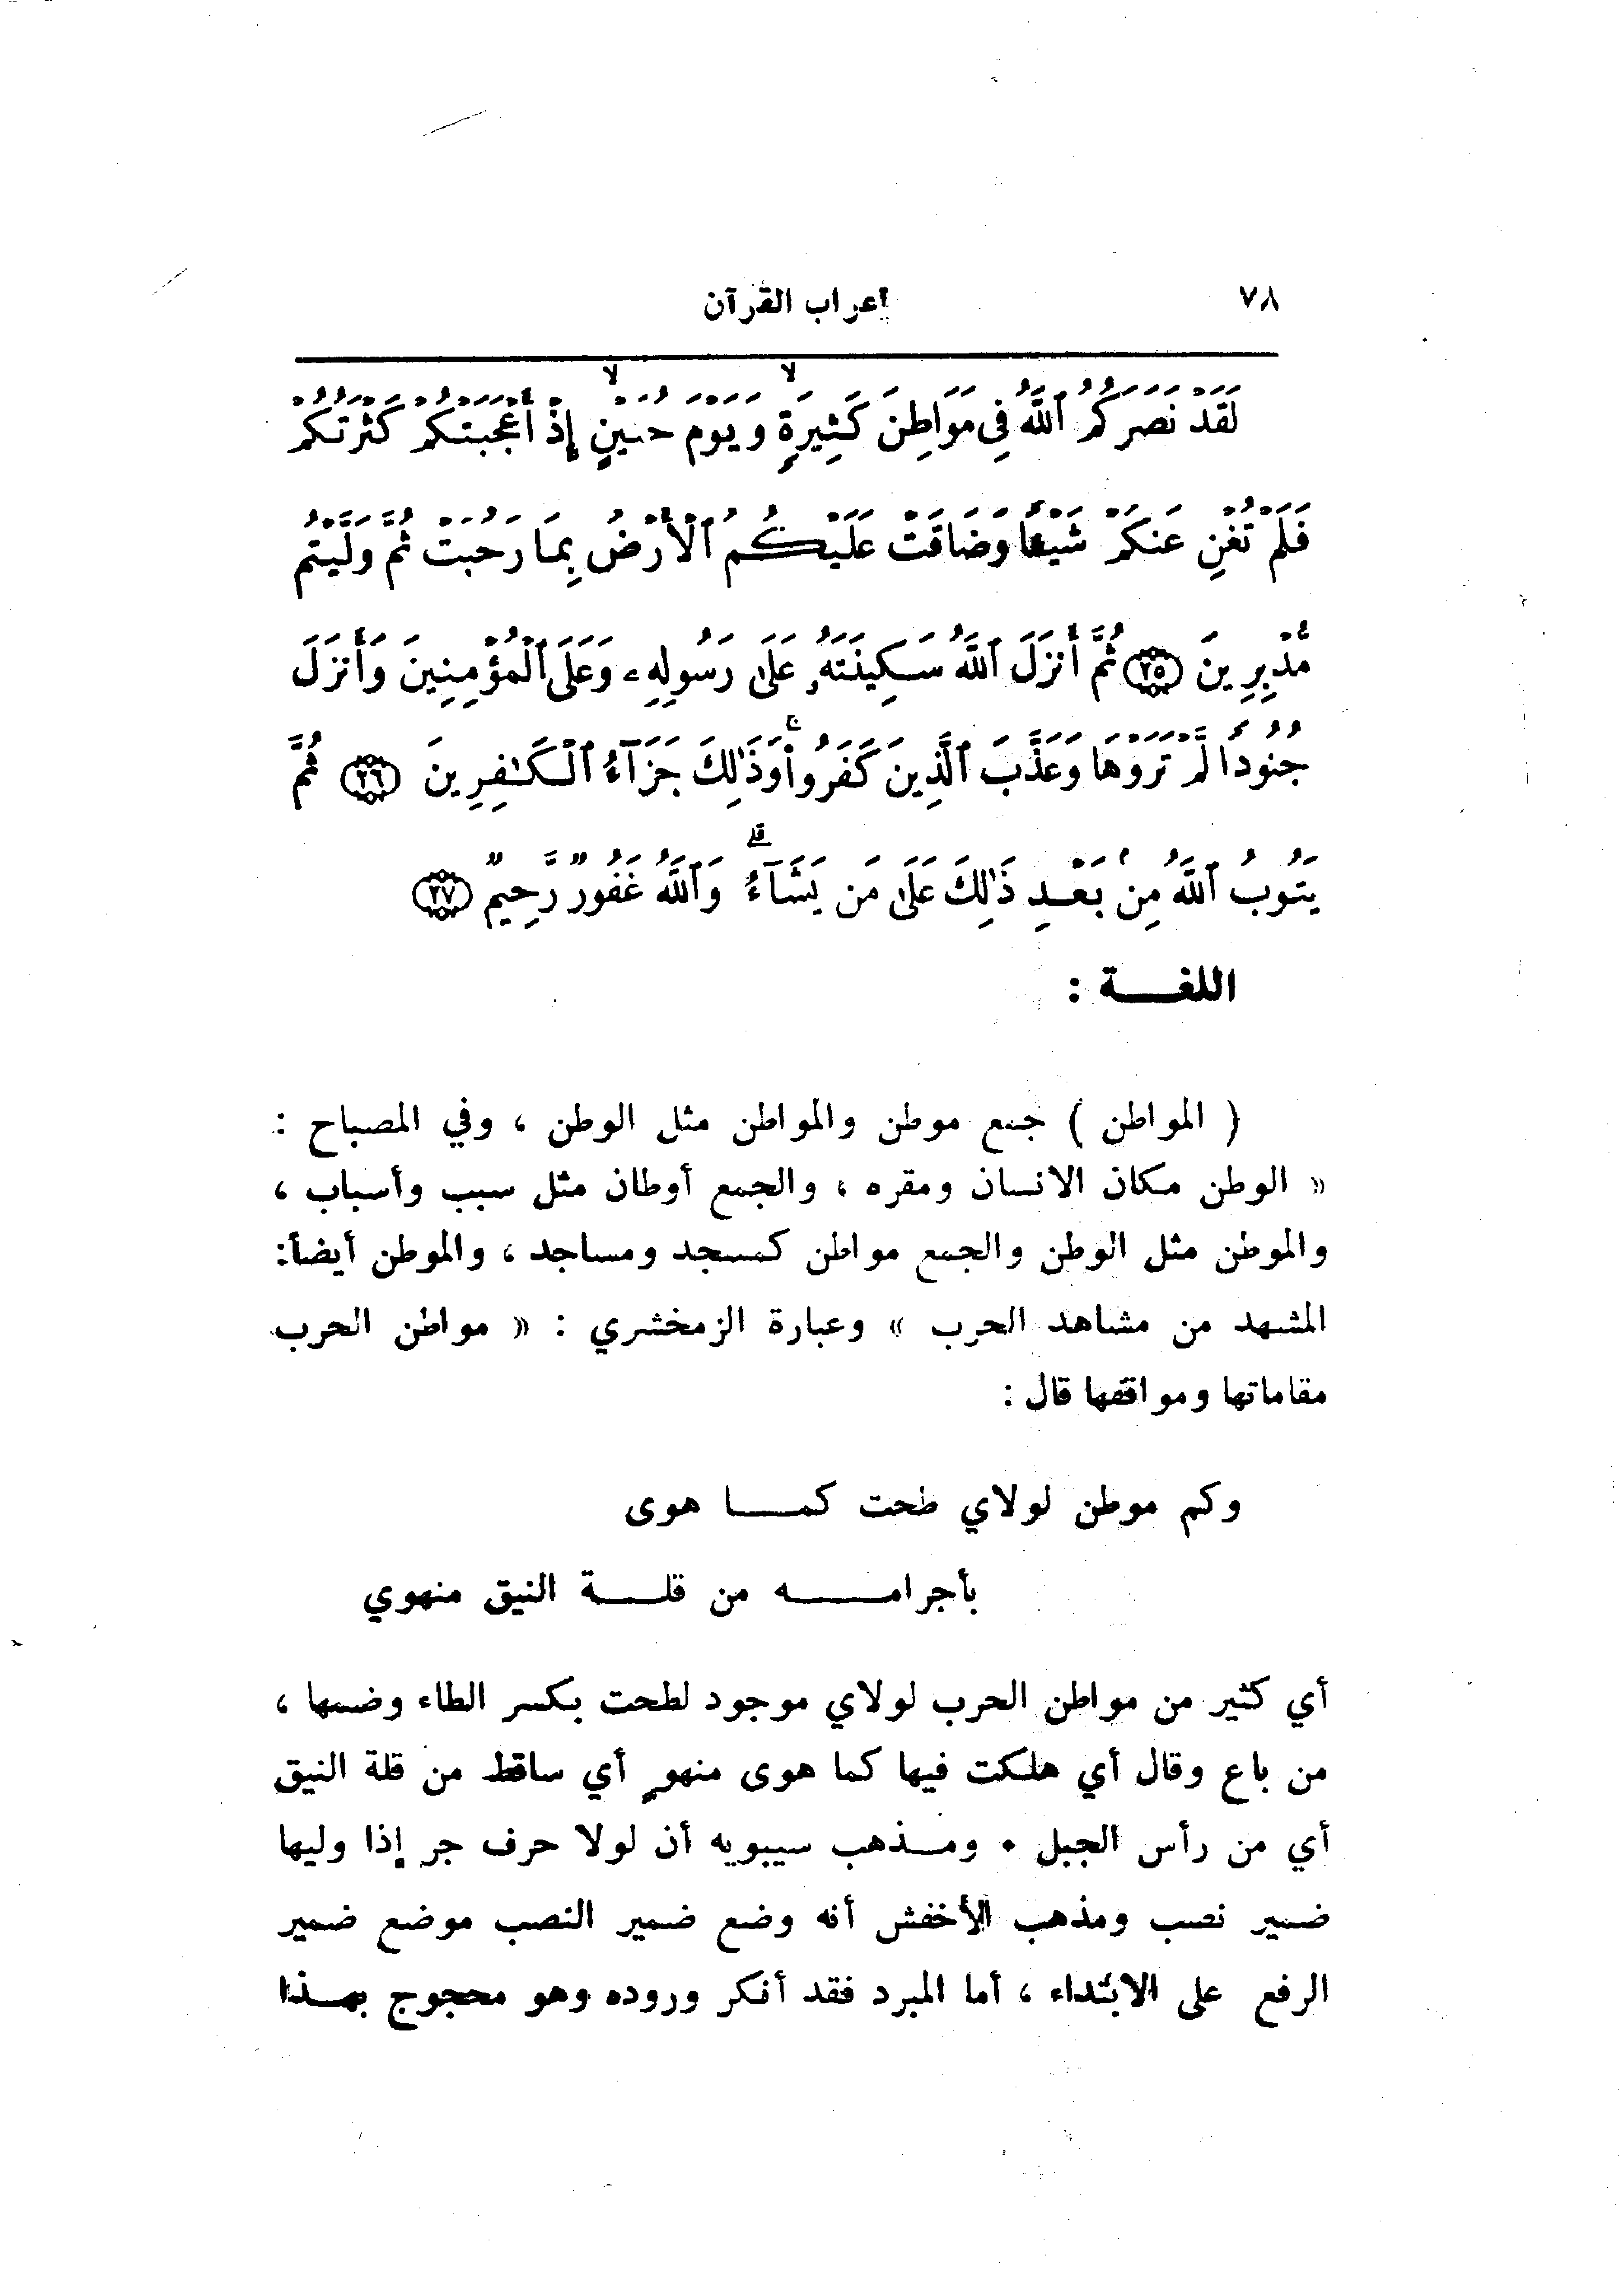 ٧٨
اعراب القرآن
لَقَدْ نَصَرَكُمُ ٱللَّهُ فِى مَوَاطِنَ كَثِيرَةٍۙ وَيَوْمَ حُنَيْنٍۙ إِذْ أَعْجَبَتْكُمْ كَثْرَتُكُمْ
فَلَمْ تُغْنِ عَنكُمْ شَيْـًٔا وَضَاقَتْ عَلَيْكُمُ ٱلْأَرْضُ بِمَا رَحُبَتْ ثُمَّ وَلَّيْتُم
مُّدْبِرِينَ ﴿٢٥﴾ ثُمَّ أَنزَلَ ٱللَّهُ سَكِينَتَهُۥ عَلَىٰ رَسُولِهِۦ وَعَلَى ٱلْمُؤْمِنِينَ وَأَنزَلَ
جُنُودًا لَّمْ تَرَوْهَا وَعَذَّبَ ٱلَّذِينَ كَفَرُوا۟ۚ وَذَٰلِكَ جَزَآءُ ٱلْكَـٰفِرِينَ ﴿٢٦﴾ ثُمَّ
يَتُوبُ ٱللَّهُ مِنۢ بَعْدِ ذَٰلِكَ عَلَىٰ مَن يَشَآءُۗ وَٱللَّهُ غَفُورٌ رَّحِيمٌ ﴿٢٧﴾
اللغـــة :
( المواطن ) جمع موطن والمواطن مثل الوطن ، وفي المصباح :
« الوطن مكان الانسان ومقره ، والجمع أوطان مثل سبب وأسباب ،
والموطن مثل الوطن والجمع مواطن كمسجد ومساجد ، والموطن أيضاً:
المشهد من مشاهد الحرب » وعبارة الزمخشري : « مواطن الحرب
مقاماتها ومواقفها قال :
وكم موطن لولاي طحت كمـــا هوى
بأجرامـــه من قلـــة النيق منهوي
أي كثير من مواطن الحرب لولاي موجود لطحت بكسر الطاء وضمها ،
من باع وقال أي هلكت فيها كما هوى منهوٍ أي ساقط من قلة النيق
أي من رأس الجبل . ومـذهب سيبويه أن لولا حرف جر إذا وليها
ضمير نصب ومذهب الأخفش أنه وضع ضمير النصب موضع ضمير
الرفع على الابتداء ، أما المبرد فقد أنكر وروده وهو محجوج بهـذا